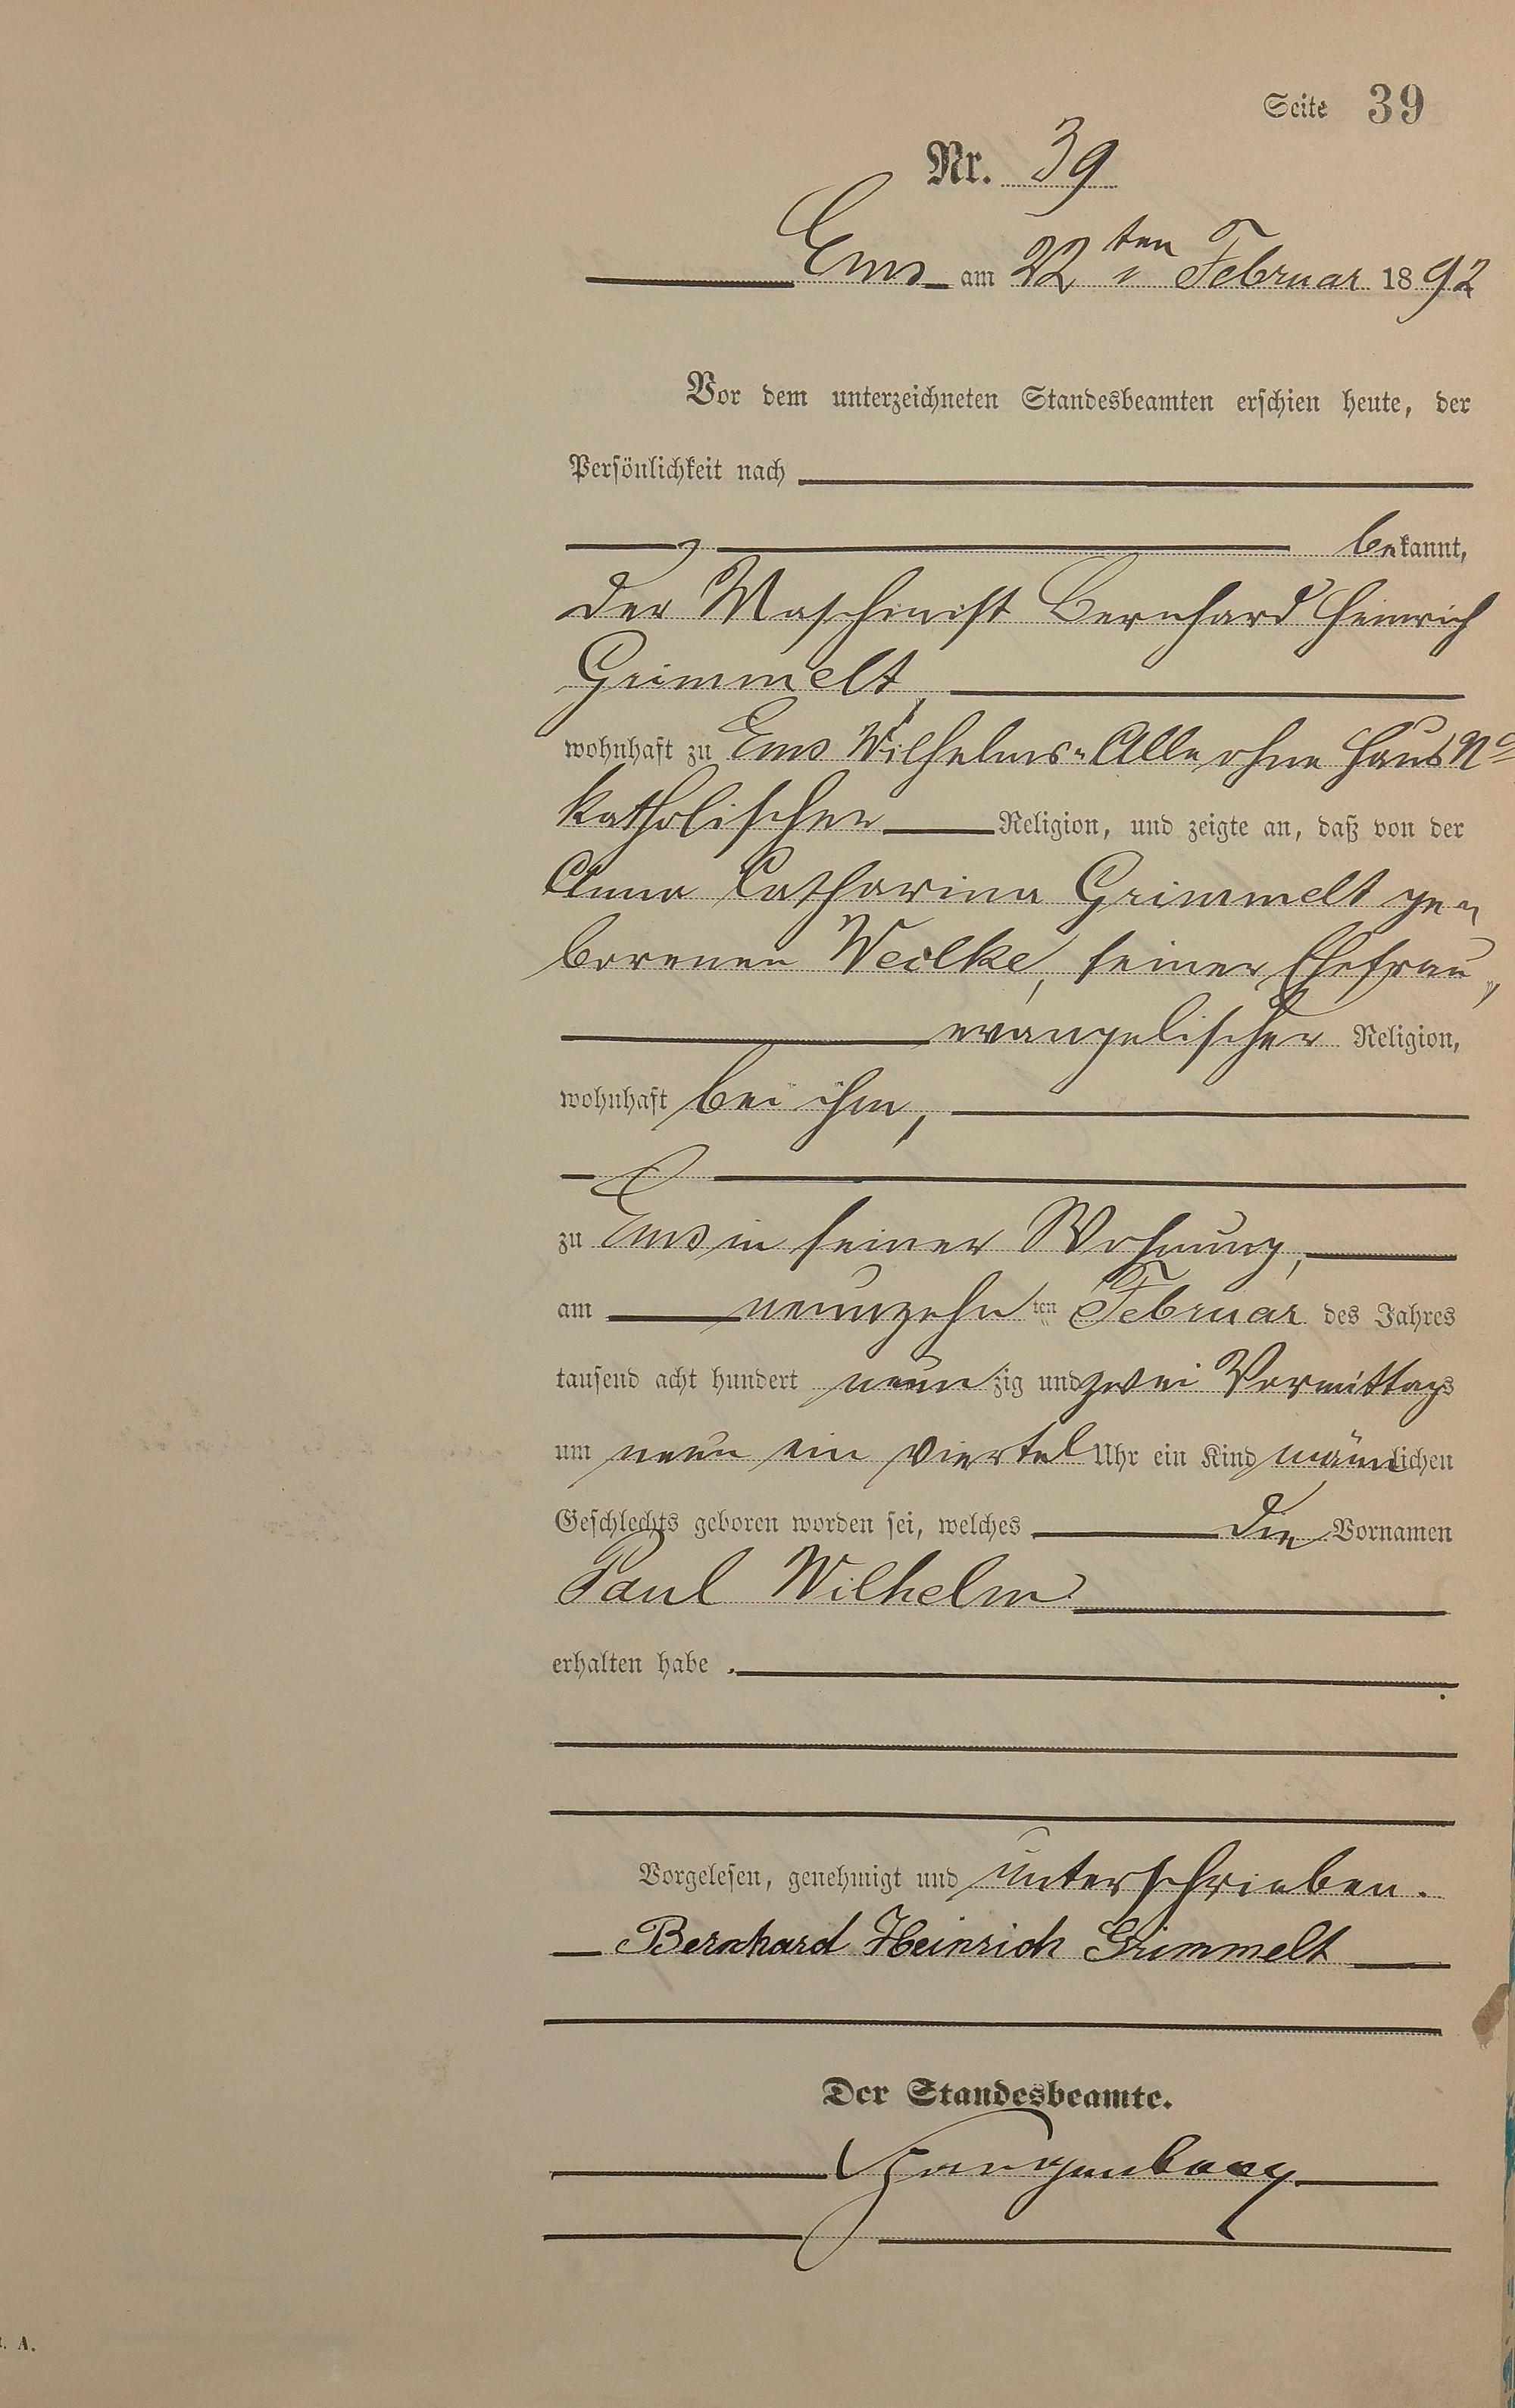 Seite 39
Nr. 39
Ems am 22ten Februar 1892
Vor dem unterzeichneten Standesbeamten erschien heute, der
Persönlichkeit nach
bekannt,
der Maschinist Bernhard Heinrich
Grimmelt,
wohnhaft zu Ems Wilhelms-Alle ohne Haus No
katholischer Religion, und zeigte an, daß von der
Anna Catharina Grimmelt ge-
borenen Weilke, seiner Ehefrau,
evangelischer Religion,
wohnhaft bei ihm,
zu Ems in seiner Wohnung,
am neunzehnten Februar des Jahres
tausend acht hundert neunzig und zwei Vormittags
um neun ein viertel Uhr ein Kind männlichen
Geschlechts geboren worden sei, welches die Vornamen
Paul Wilhelm
erhalten habe.
Vorgelesen, genehmigt und unterschrieben.
Bernhard Heinrich Grimmelt
Der Standesbeamte.
A.